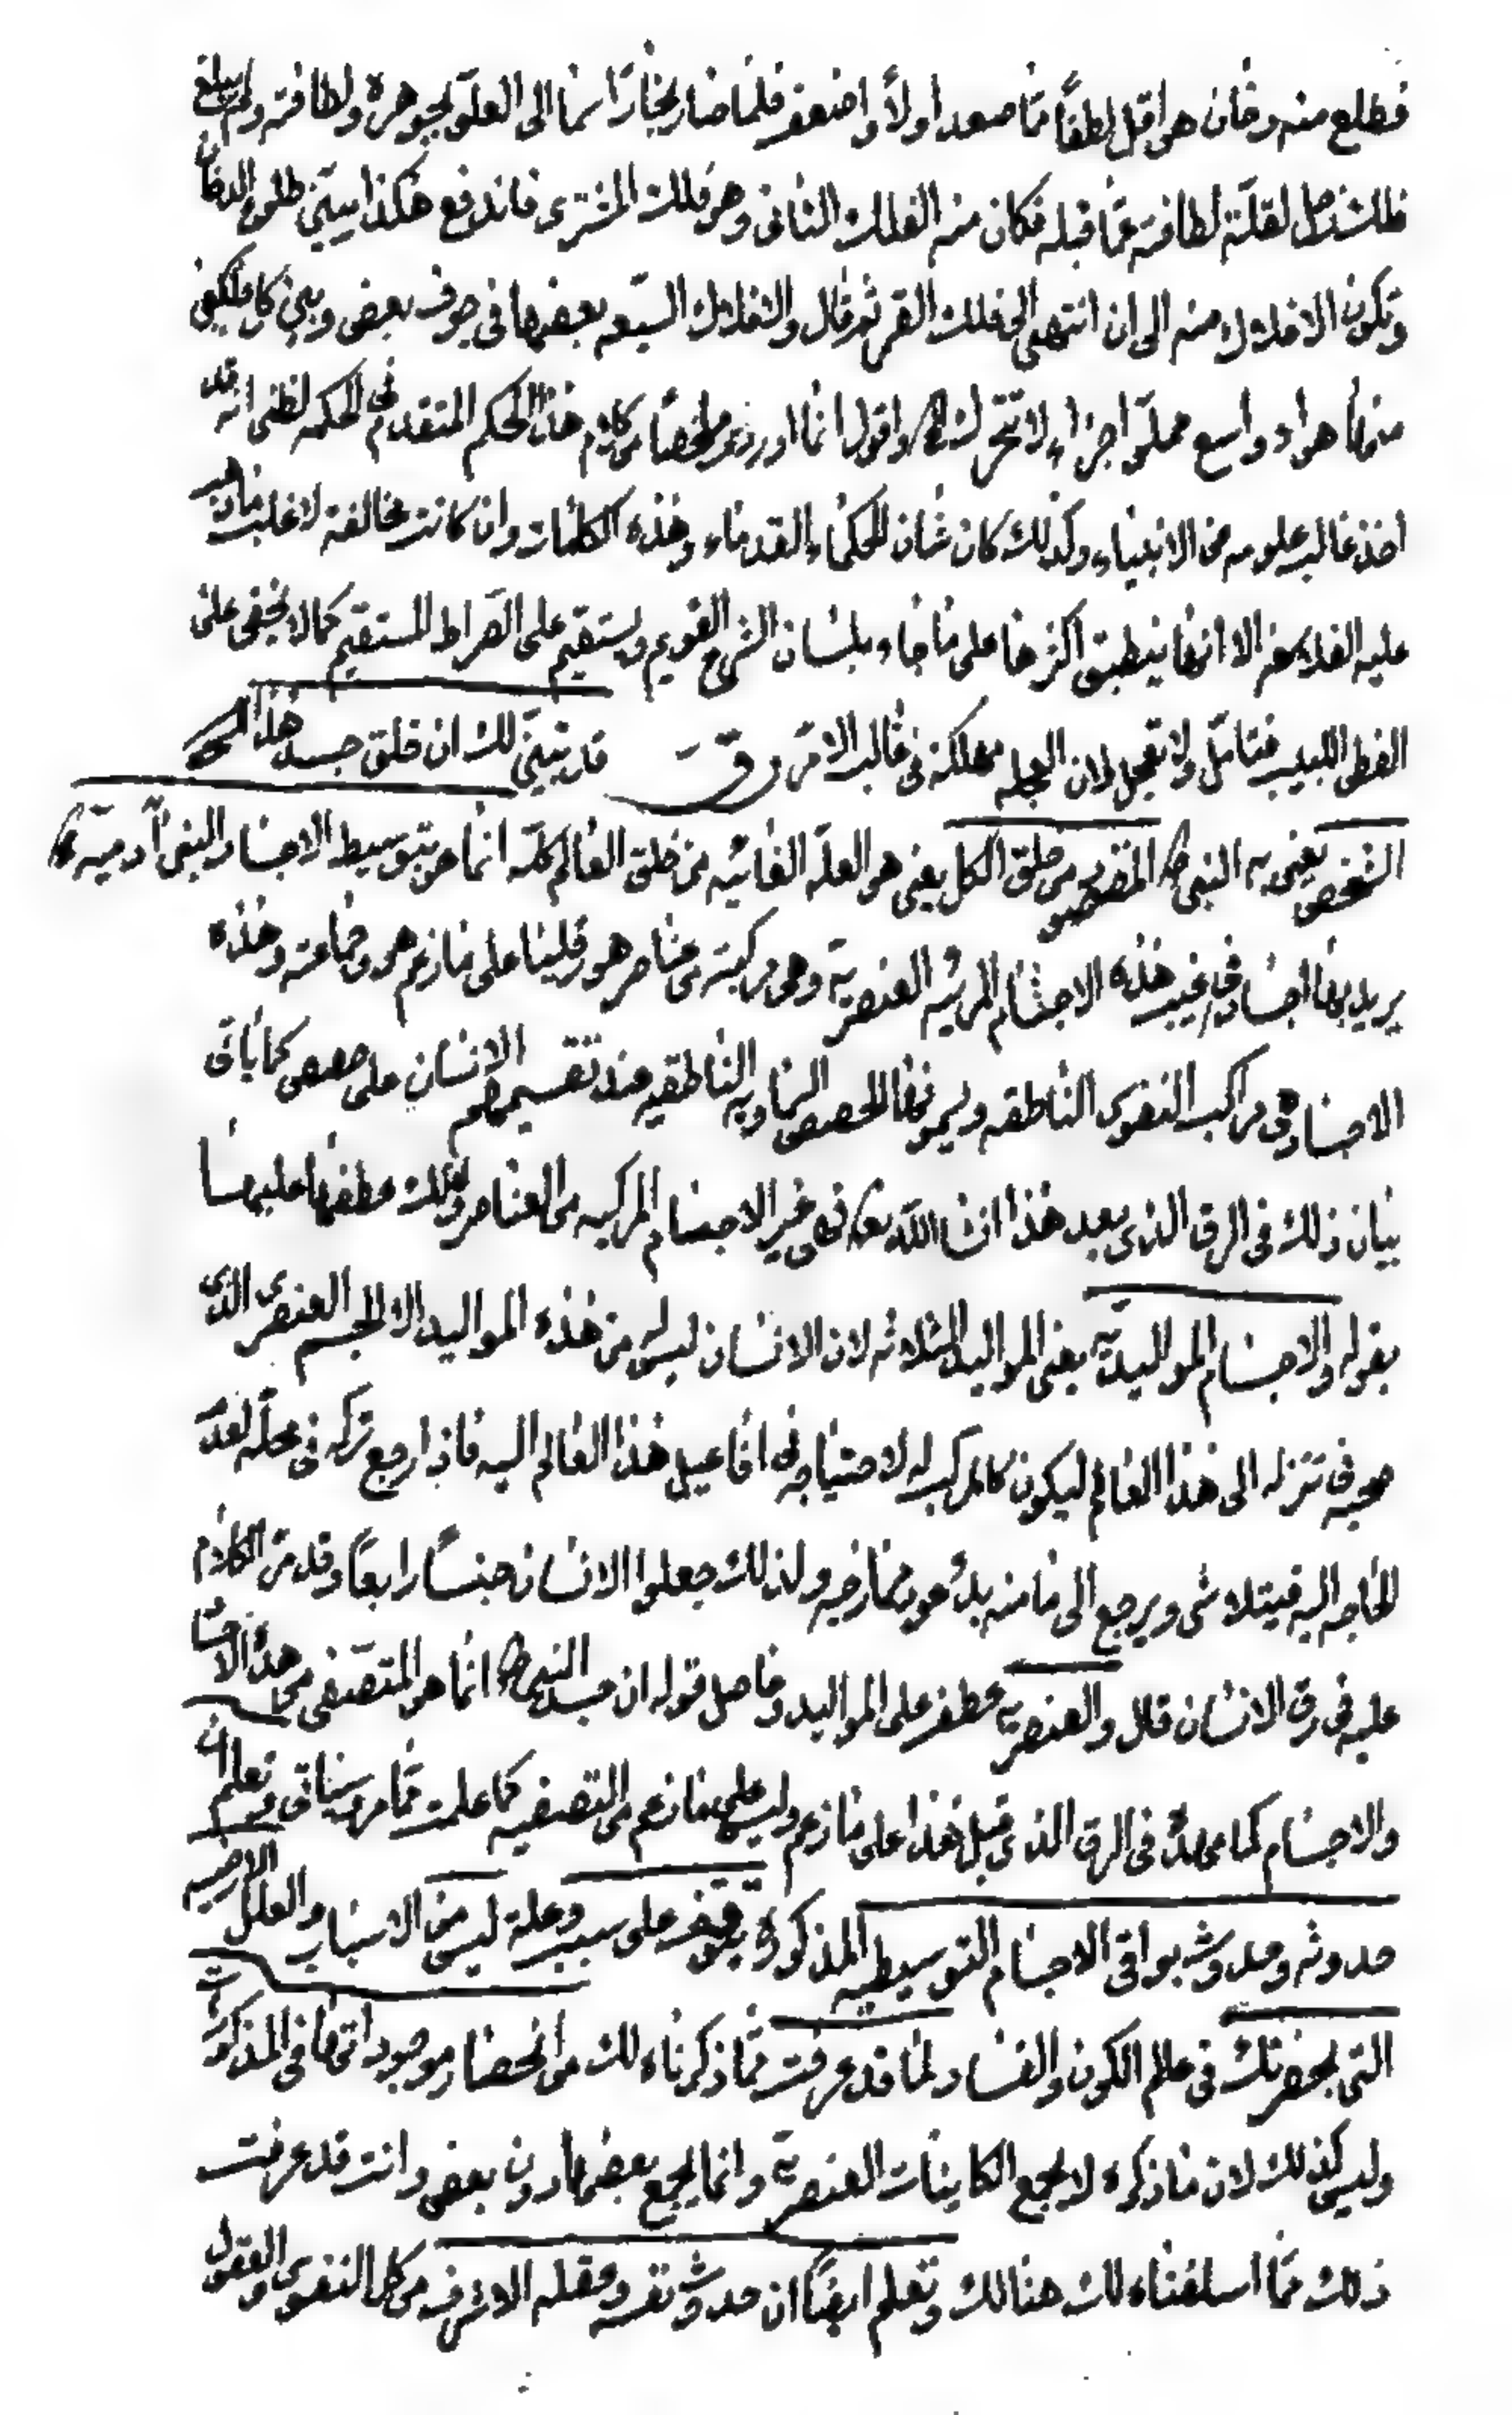 فطلع منه دخان هو اقل لطفاً مما صعد اولاً واضعف فلما صار بخاراً سما الى العلو لجوهره ولطافته ولم يبلغ
فلك زحل لقلة لطافته عما قبله فكان منه الفلك الثانى وهو فلك المشترى فاندفع هكذا يبين طلوع الدخان
وتكون الافلاك منه الى ان انتهى الى فلك القمر ثم قال والافلاك السبعه بعضها فى جوف بعض وبين كل فلكين
منها هواء واسع مملو اجزاء لا تتحرك اه واقول انما اوردته ملخصاً من كلام هذا الحكيم المتقدم فى الحكمه لظنى انه قد
اخذ غالب علومه من الانبياء وكذلك كان شان الحكماء القدماء وهذه الكلمات وان كانت مخالفة لاغلب ما ذهب
عليه الفلاسفه الا انها ينطبق اكثرها على ما جاء بلسان الشرع القويم ويستقيم على الصراط المستقيم كما لا يخفى على
الفطن اللبيب فتامل ولا تعجل لان العجله مهلكة فى غالب الامر رق قد تبين لك ان خلق جسد هذا
الشخص يعنى به النبى ص المقصود من خلق الكل يعنى هو العلة الغائيه من خلق العالم كله انما هو بتوسيط الاجساد البنى آدميه
يريد بها اجساد فى غيب هذه الاجسام المرئيه العنصرية وهى مركبة من عناصر هورقليا على ما زعم هو وجماعته وهذه
الاجساد هى مراكب النفوس الناطقه ويسمونها الحصص السماويه الناطقيه عند تقسيمهم الانسان على حصص كما ياتى
بيان ذلك فى الرق الذى بعد هذا انشاء الله تعالى فهى غير الاجسام المركبه من العناصر ولذلك عطفها عليها
بقوله والاجسام المواليدية يعنى المواليد الثلاثه لان الانسان ليس من هذه المواليد الا الجسم العنصرى الذى
صحبه فى تنزله الى هذا العالم ليكون كالمركب له لاحتياجه فى افاعيل هذا العالم اليه فاذا رجع تركه فى محله لعدم
الحاجه اليه فيتلاشى ويرجع الى ما منه بدء عود ممازجه ولذلك جعلوا الانسان جنساً رابعاً وقد مر الكلام
عليه فى رق الانسان قال والعنصريه عطف على المواليد وحاصل قوله ان جسد النبى ص انما هو المتصفى من هذه الاجساد
والاجسام كما فى الرق الذى قبل هذا على ما زعم وليس على ما زعم من التصفيه كما علمت مما مر وسياتى وتعلم ان
حدوثه وحدوث بواقى الاجسام التوسيطيه المذكورة يتوقف على سبب وعلة ليس من الاسباب والعلل الارضيه
التى بحضرتك فى عالم الكون والفساد لما قد عرفت مما ذكرناه لك من انحصار موجوداتها فى المذكورات
وليس كذلك لان ما ذكره لا يجمع الكاينات العنصرية وانما يجمع بعضها دون بعض وانت قد عرفت
ذلك مما اسلفناه لك هنالك وتعلم ايضاً ان حدوث نفسه وعقله الاشرف من كل النفوس والعقول